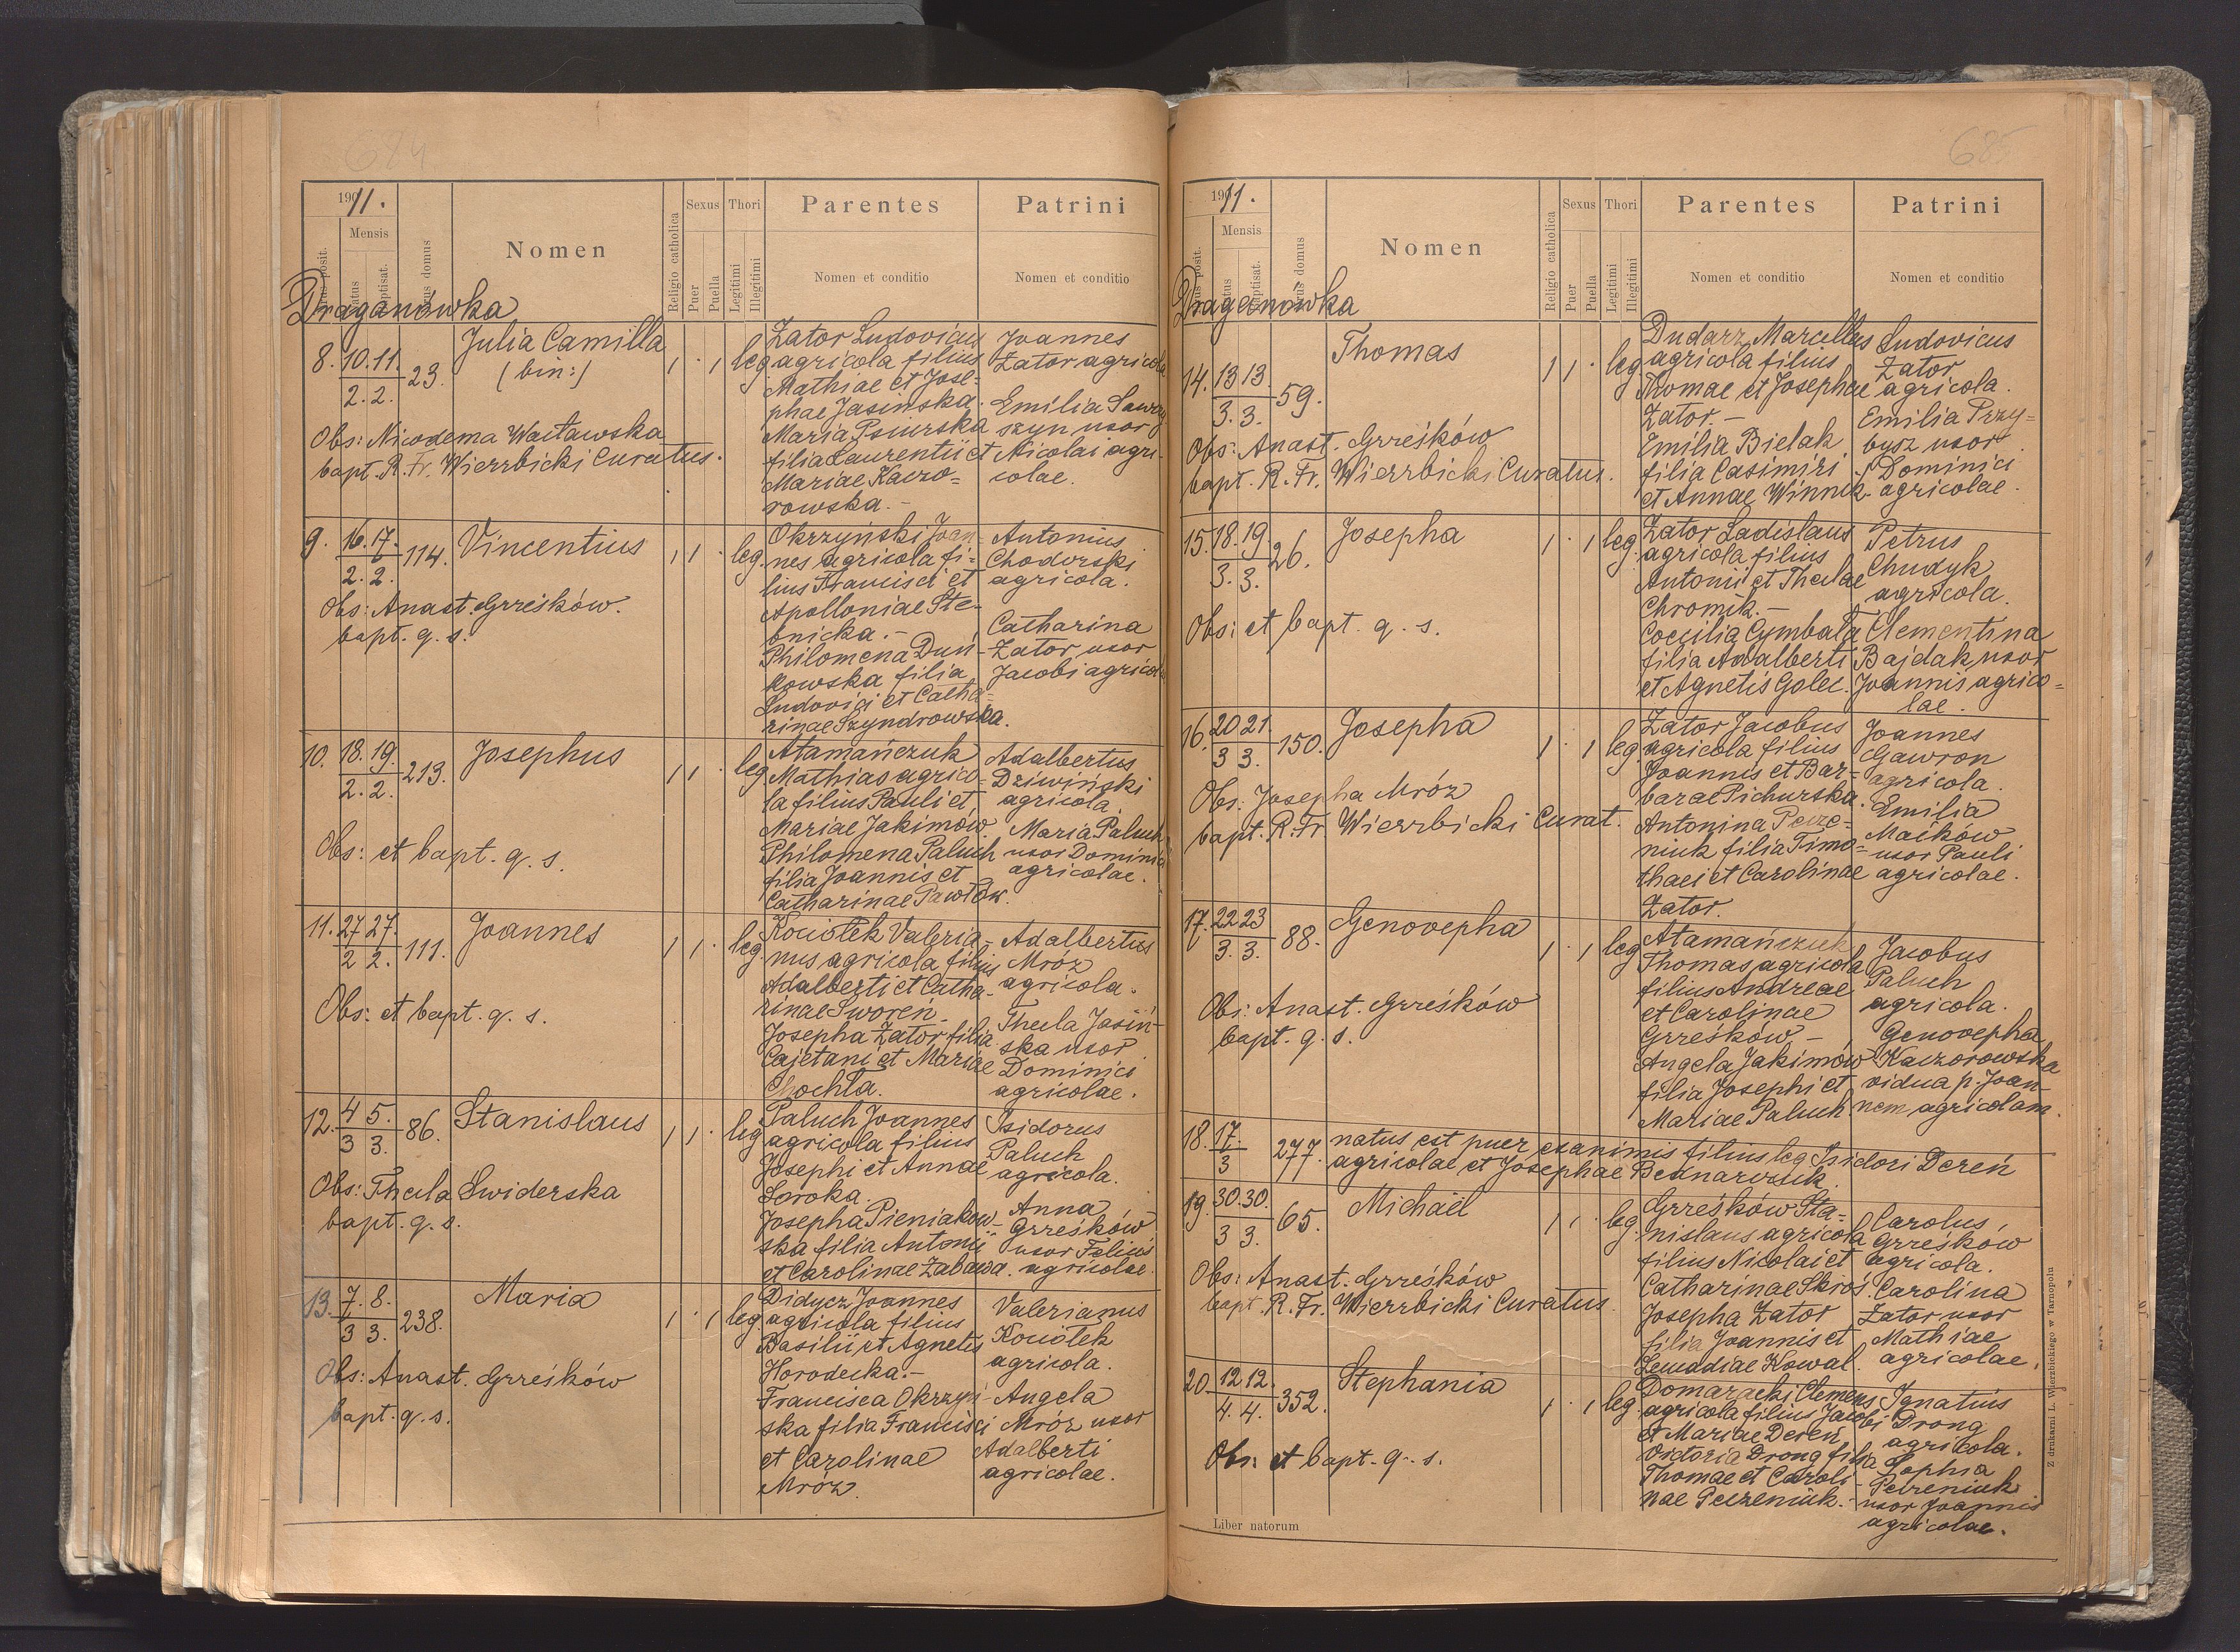 684
1911.
Mensis
Nomen
Religio catholica
Sexus
Puer
Puella
Thori
Legitimi
Illegitimi
Parentes
Nomen et conditio
Patrini
Nomen et conditio
Draganówka
8. 10. 11. 23. Julia Camilla
2. 2. (bin:)
1 · 1 leg.
Obs: Nicodema Wacławska
bapt. R. Fr. Wierzbicki Curatus.
Zator Ludovicus
agricola filius
Mathiae et Jose-
phae Jasińska.
Maria Psiurska
filia Laurentii et
Mariae Kaczo=
rowska.-
Joannes
Zator agricola
Emilia Sawczy
szyn uxor
Nicolai agri-
colae.
9. 16. 17. 114. Vincentius
2. 2.
1 1 · leg.
Obs: Anast. Grześków.
bapt. q. s.
Okrzyński Joan-
nes agricola fi-
lius Francisci et
Apolloniae Ste-
bnicka.-
Philomena Duń-
kowska filia
Ludovici et Catha-
rinae Szyndrowska.
Antonius
Chodorski
agricola.
Catharina
Zator uxor
Jacobi agricol
10. 18. 19. 213. Josephus
2. 2.
1 1 · leg.
Obs: et bapt. q. s.
Atamańczuk
Mathias agrico-
la filius Pauli et
Mariae Jakimów.
Philomena Paluch
filia Joannis et
Catharinae Pawłów.
Adalbertus
Dziwiński
agricola.
Maria Paluch
uxor Dominici
agricolae.
11. 27 27. 111. Joannes
2 2.
1 1 · leg.
Obs: et bapt. q. s.
Kociołek Valeria-
nus agricola filius
Adalberti et Catha-
rinae Sworeń-
Josepha Zator filia
Cajetani et Mariae
Chochla.
Adalbertus
Mróz
agricola.
Thecla Jasiń-
ska uxor
Dominici
agricolae.
12. 4 5. 86. Stanislaus
3 3.
1 1 · leg
Obs: Thecla Swiderska
bapt. q. s.
Paluch Joannes
agricola filius
Josephi et Annae
Soroka.
Josepha Pieniakow-
ska filia Antonii
et Carolinae Zabawa.
Isidorus
Paluch
agricola.
Anna
Grześków
uxor Felicis
agricolae.
13. 7. 8. 238. Maria
3 3.
1 · 1 leg.
Obs: Anast. Grześków
bapt. q. s.
Didycz Joannes
agricola filius
Basilii et Agnetis
Horodecka.-
Francisca Okrzyń-
ska filia Francisci
et Carolinae
Mróz.
Valerianus
Kociołek
agricola.
Angela
Mróz uxor
Adalberti
agricolae.
685
1911.
Mensis
Nomen
Religio catholica
Sexus
Puer
Puella
Thori
Legitimi
Illegitimi
Parentes
Nomen et conditio
Patrini
Nomen et conditio
Draganówka
14. 13 13. 59. Thomas
3. 3.
1 1 · leg.
Obs: Anast. Grześków
bapt. R. Fr. Wierzbicki Curatus.
Dudarz Marcellus
agricola filius
Thomae et Josephae
Zator.-
Emilia Bielak
filia Casimiri
et Annae Winnik.
Ludovicus
Zator
agricola.
Emilia Przy=
bysz uxor
Dominici
agricolae.
15. 18. 19. 26. Josepha
3. 3.
1 · 1 leg.
Obs: et bapt. q. s.
Zator Ladislaus
agricola filius
Antonii et Theclae
Chromik.-
Coecilia Cymbała
filia Adalberti
et Agnetis Golec.
Petrus
Chudyk
agricola.
Clementina
Bajdak uxor
Joannis agrico=
lae.
16. 20 21. 150. Josepha
3 3.
1 · 1 leg.
Obs: Josepha Mróz
bapt. R. Fr. Wierzbicki Curat.
Zator Jacobus
agricola filius
Joannis et Bar=
barae Pichurska.
Antonina Pecze-
niuk filia Timo=
thaei et Carolinae
Zator.
Joannes
Gawron
agricola.
Emilia
Maików
uxor Pauli
agricolae.
17. 22 23 88. Genovepha
3. 3.
1 · 1 leg
Obs: Anast. Grześków
bapt. q. s.
Atamańczuk
Thomas agricola
filius Andreae
et Carolinae
Grześków.-
Angela Jakimów
filia Josephi et
Mariae Paluch.
Jacobus
Paluch
agricola.
Genovepha
Kaczorowska
vidua p. Joan-
nem agricolam.
18. 17. 277. natus est puer exanimis filius leg Isidori Dereń
3 agricolae et Josephae Bednarczuk.
19. 30. 30. 65. Michaël
3 3.
1 1 · leg.
Obs: Anast. Grześków
bapt. R. Fr. Wierzbicki Curatus.
Grześków Sta=
nislaus agricola
filius Nicolai et
Catharinae Skiroś.
Josepha Zator
filia Joannis et
Leucadiae Kowal.
Carolus
Grześków
agricola.
Carolina
Zator uxor
Mathiae
agricolae.
20. 12 12. 352. Stephania
4. 4.
1 · 1 leg.
Obs: et bapt. q. s.
Domaracki Clemens
agricola filius Jacobi
et Mariae Dereń
Victoria Drong filia
Thomae et Caroli-
nae Peczeniuk.-
Ignatius
Drong
agricola.
Sophia
Peczeniuk
uxor Joannis
agricolae.
Liber natorum
Z drukarni L. Wierzbickiego w Tarnopolu